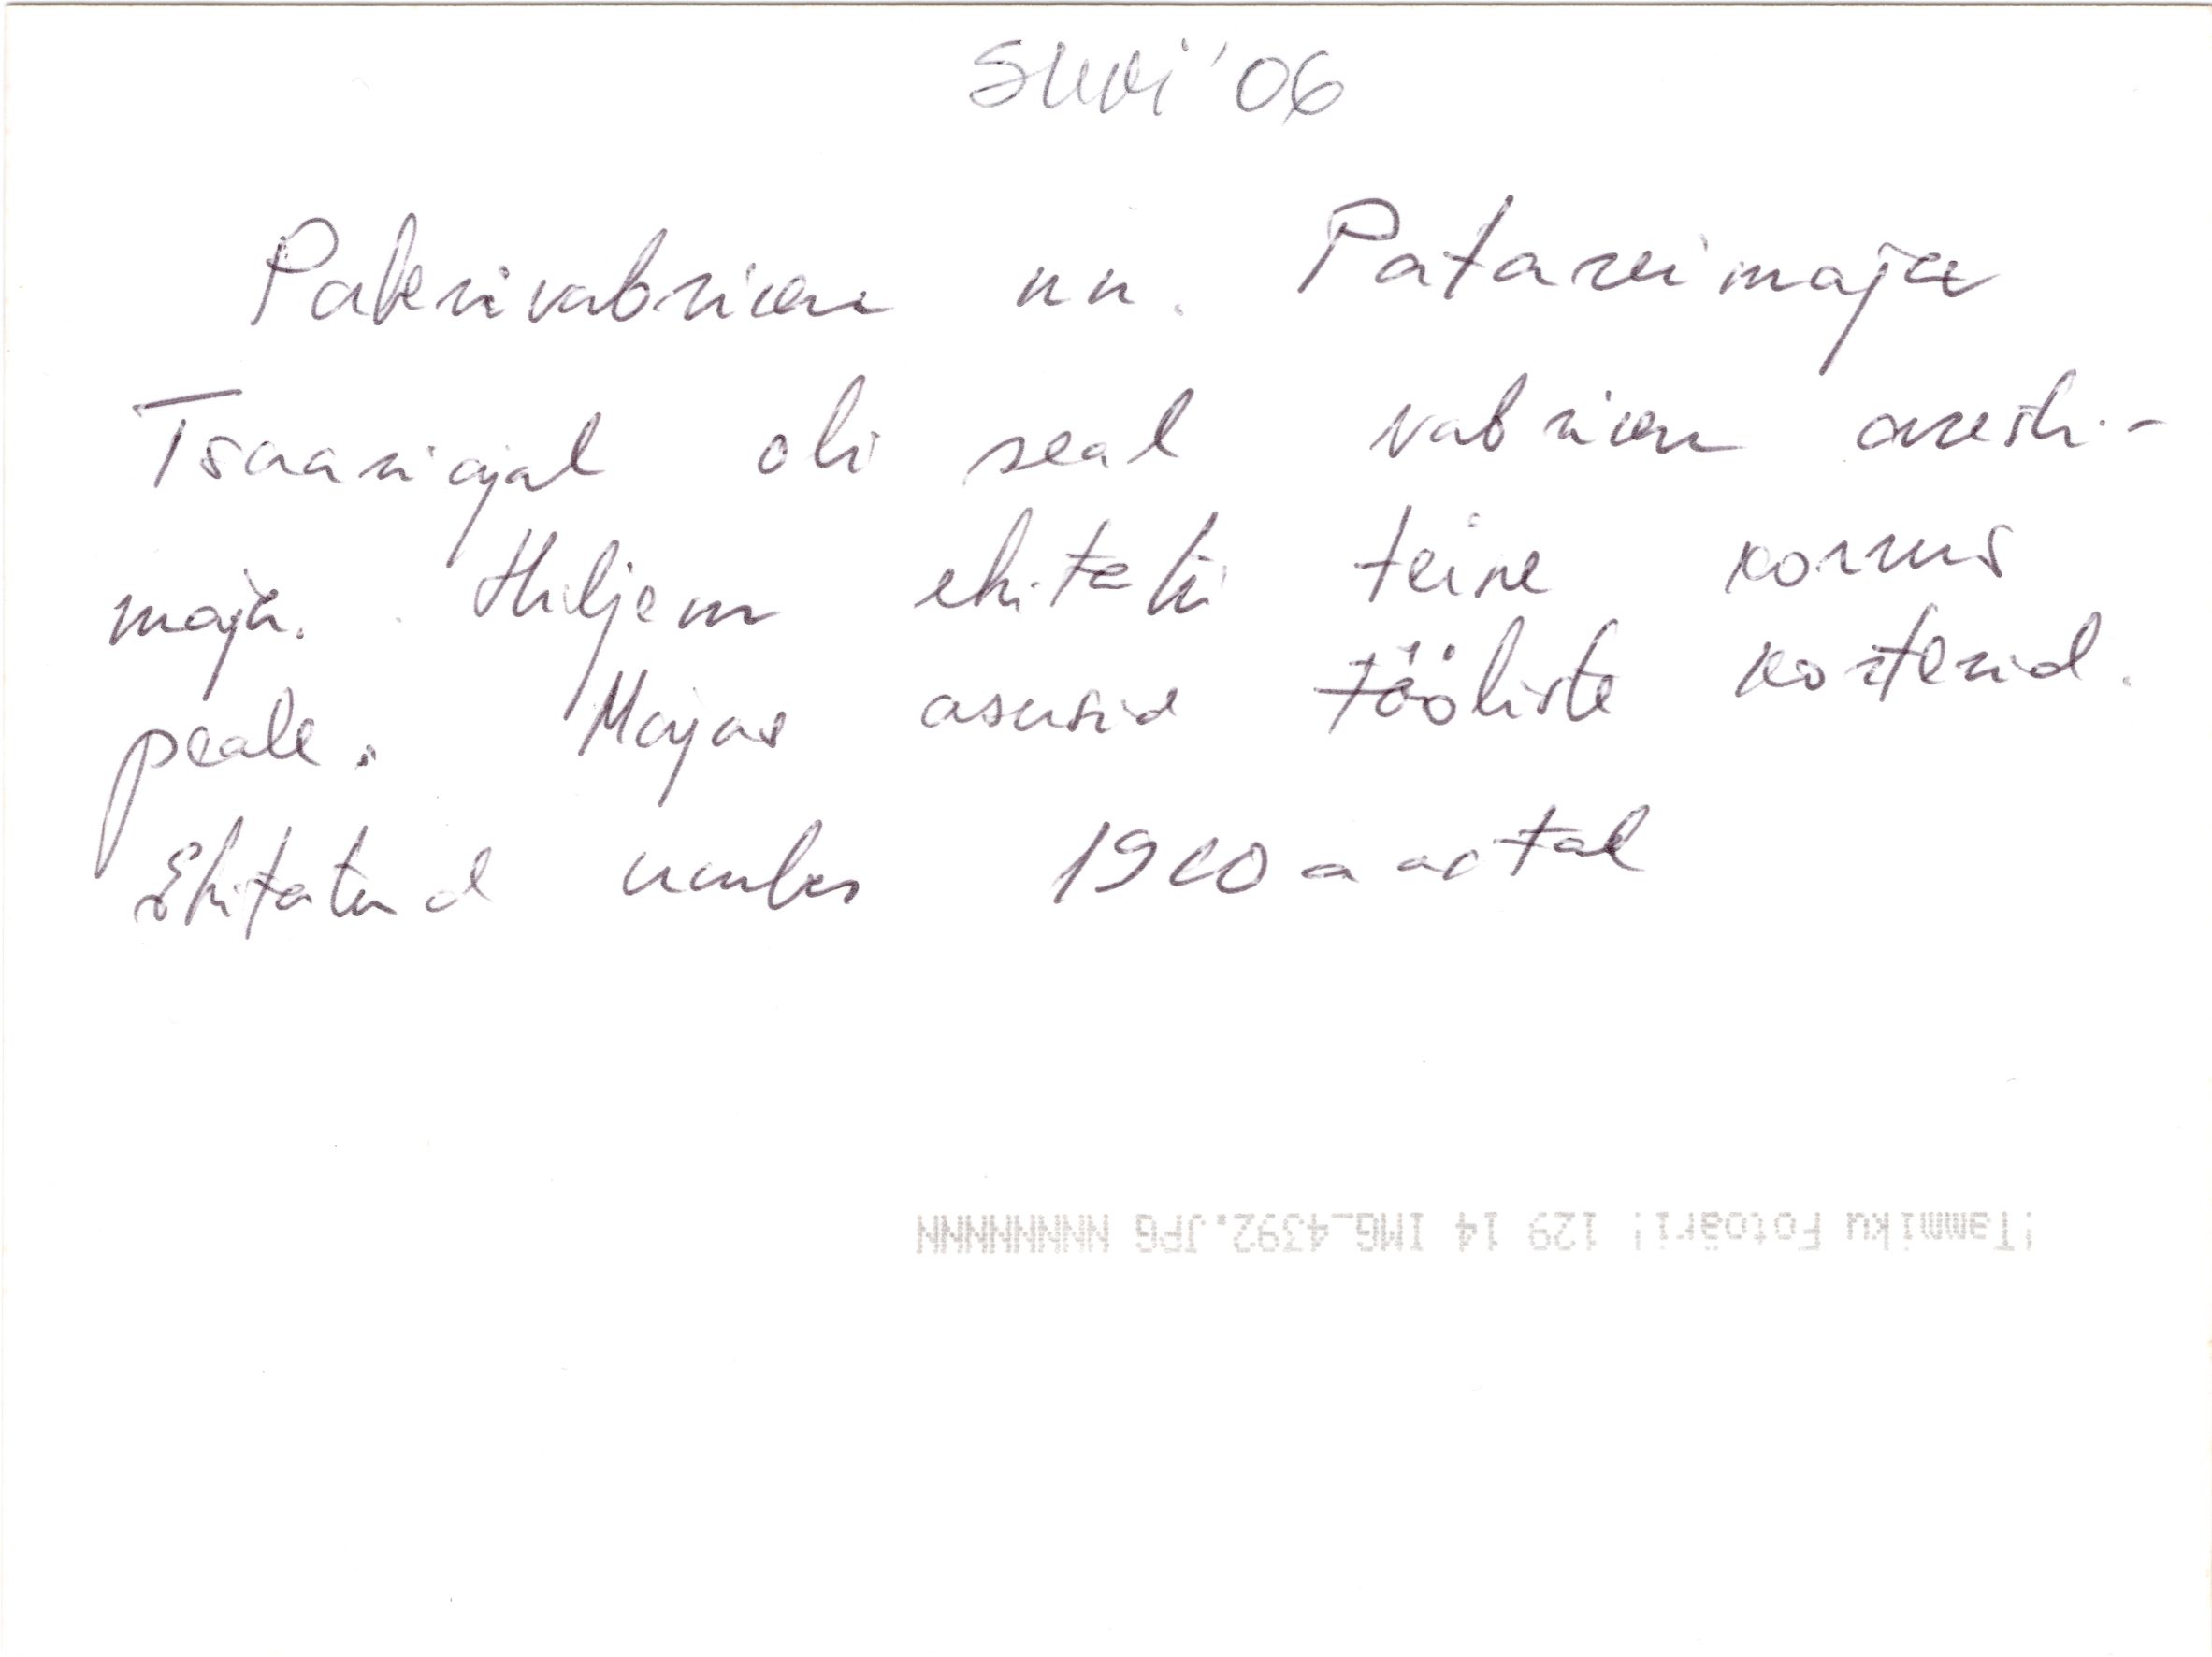 SUVI '06
Paberivabriku nn. Patareimaja
Tsaariajal oli seal vabriku aresti-
maja. Hiljem ehitati teine korrus
peale. Majas asusid tööliste korterid.
Ehitatud umbes 1900 aastal
¡Tammiku Fotoäri¡ 129 14 IMG_4392.JPG NNNNNNNN